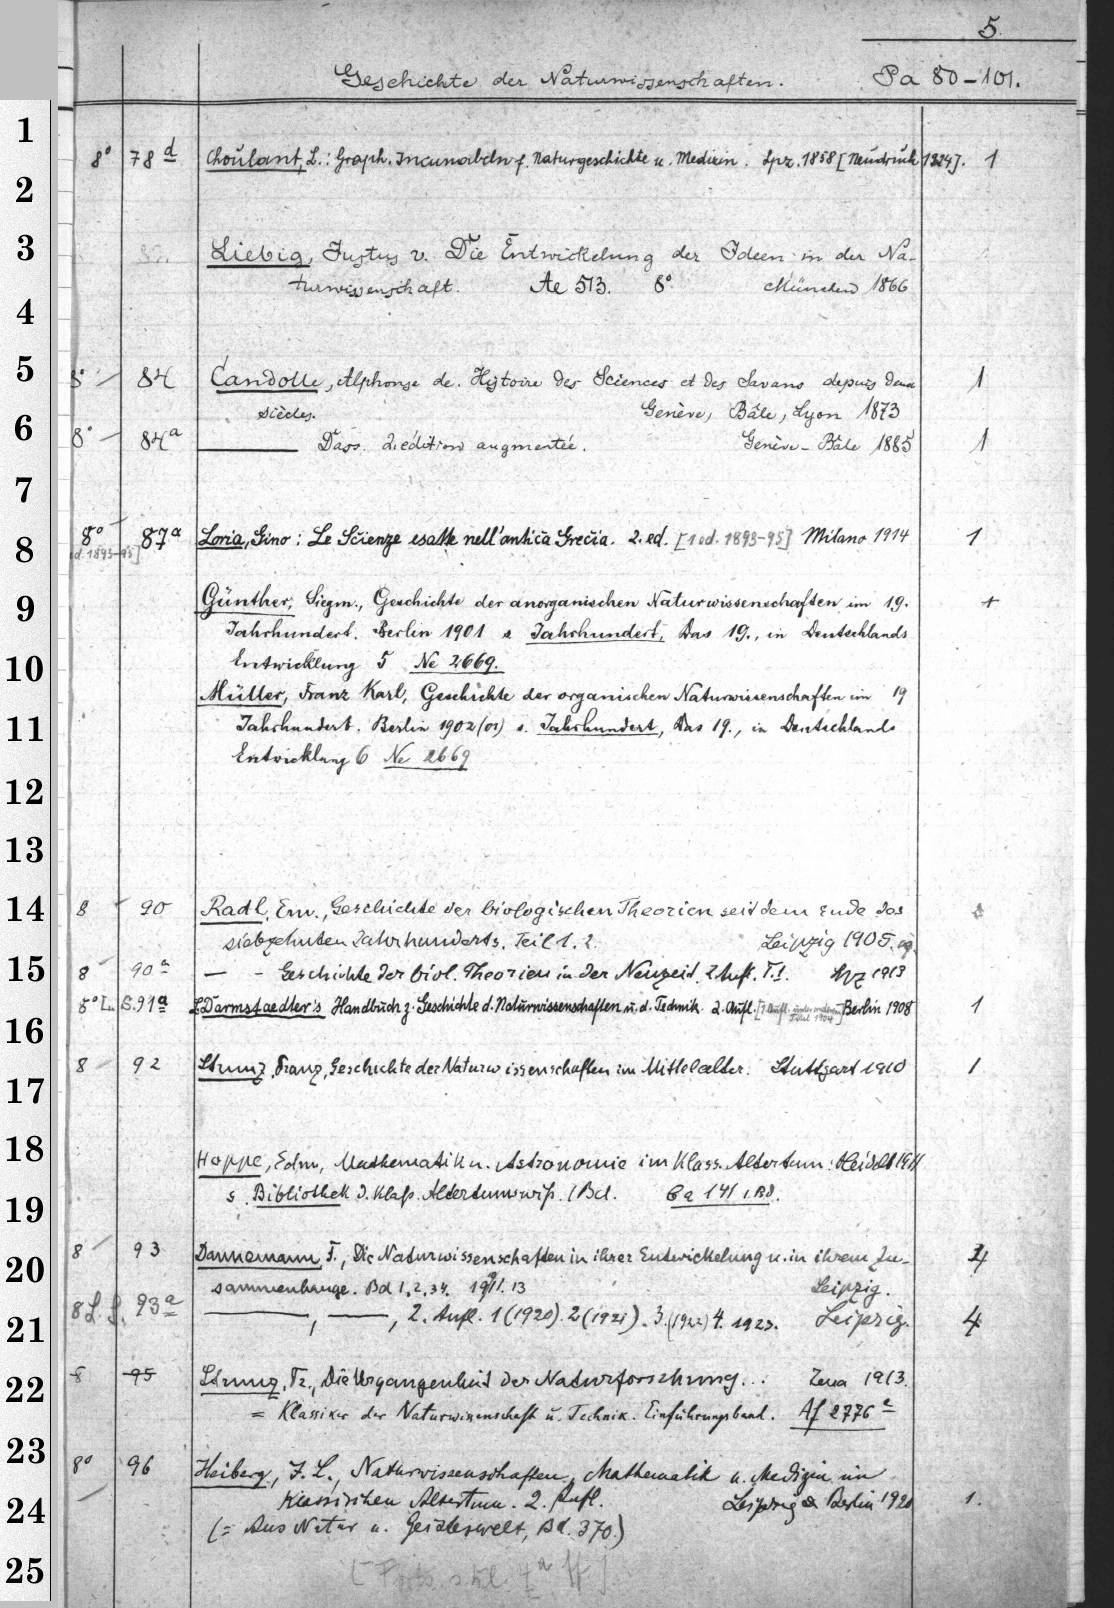 5
Geschichte der Naturwissenschaften. Pa 80-101.
1
8° 78 d Choulant, L.: Graph. Incunabeln f. Naturgeschichte u. Medizin. Lpz. 1858 [Neudruck 1924]. 1
2
3
Liebig, Justus v. Die Entwickelung der Ideen in der Na-
turwissenschaft. Ae 513. 8° München 1866
4
5
8° 84 Candolle, Alphonse de. Histoire des Sciences et des Savans depuis deux 1
siècles. Genève, Bâle, Lyon 1873
6
8° 84a Dass. 2. édition augmentée. Genève-Bâle 1885 1
7
8° 87a Loria, Gino: Le Scienze esatte nell'antica Grecia. 2. ed. [1 ed. 1893-95] Milano 1914 1
8
ed. 1893-95]
9
Günther, Siegm., Geschichte der anorganischen Naturwissenschaften im 19. +
Jahrhundert. Berlin 1901 s Jahrhundert, Das 19., in Deutschlands
10
Entwicklung 5 Ne 2669.
Müller, Franz Karl, Geschichte der organischen Naturwissenschaften im 19
11
Jahrhundert. Berlin 1902(01) s. Jahrhundert, Das 19., in Deutschlands
Entwicklung 6 Ne 2669
12
13
14
8 90 Radl, Em., Geschichte der biologischen Theorien seit dem Ende des
siebzehnten Jahrhunderts. Teil 1. 2. Leipzig 1905. 09.
15
8 90a — - Geschichte der biol. Theorien in der Neuzeit. 2. Aufl. T. 1. Lpz 1913
8° B. 91a L. Darmstaedter's Handbuch z. Geschichte d. Naturwissenschaften u. d. Technik. 2. Aufl. [1 Aufl. unter anderem Titel 1904] Berlin 1908 1
16
8 92 Strunz, Franz, Geschichte der Naturwissenschaften im Mittelalter. Stuttgart 1910 1
17
18
Hoppe, Edm, Mathematik u. Astronomie im Klass. Altertum. Heidelb 1911
s. Bibliothek d. klass. Altertumswiss. 1 Bd. Ca 141 1. Bd.
19
8 93 Dannemann, F., Die Naturwissenschaften in ihrer Entwickelung u. in ihrem Zu- 4
20
sammenhange. Bd 1. 2. 3 4. 1911. 13 Leipzig.
8 93a —, —, 2. Aufl. 1 (1920). 2 (1921). 3. (1922) 4. 1923. Leipzig. 4
21
8 95 Strunz, Fr., Die Vergangenheit der Naturforschung... Jena 1913.
22
= Klassiker der Naturwissenschaft u. Technik. Einführungsband. Af 2776 e
23
8° 96 Heiberg, J. L., Naturwissenschaften, Mathematik u. Medizin im
klassischen Altertum. 2. Aufl. Leipzig & Berlin 1920 1.
24
(= Aus Natur u. Geisteswelt, Bd. 370.)
25